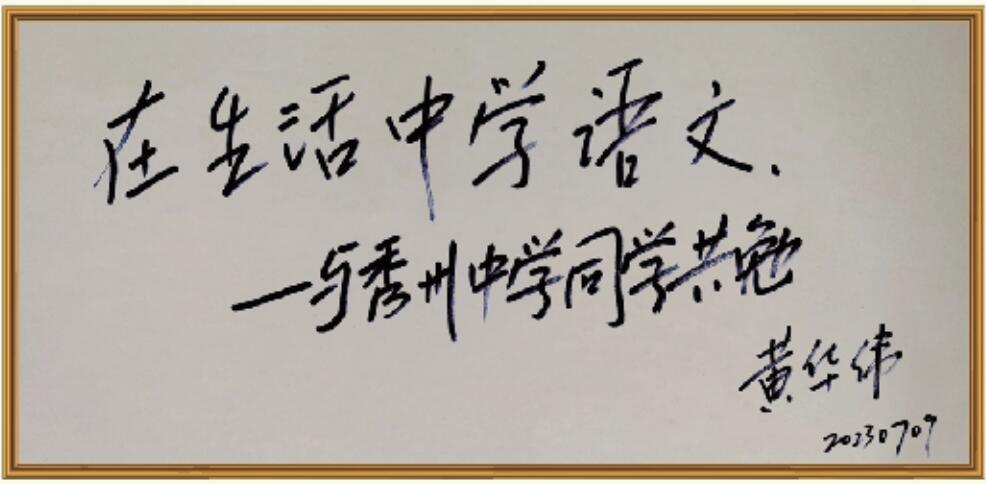 在生活中学语文.
—与秀州中学同学共勉
黄华伟
20230709